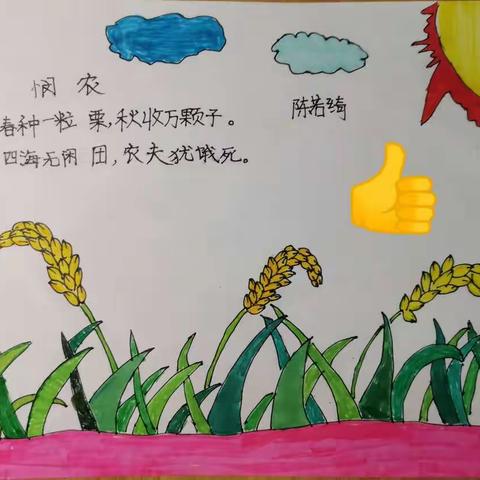 悯 农
陈若绮
春种一粒 粟,秋收万颗子。
四海无闲 团,农夫犹饿死。